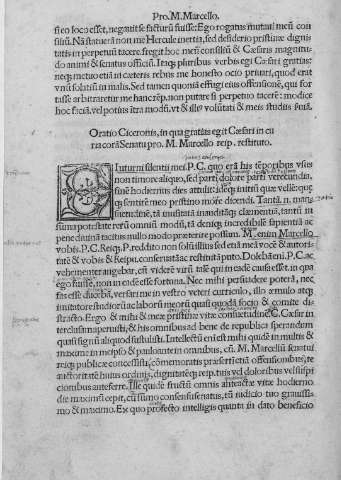 Pro.M.Marcello.
si eo loco esset, negauit se facturū fuisse: Ego rogatus mutaui meū con
siliū. Nā statuerā non me Hercule inertia, sed desiderio pristinæ digni
tatis in perpetuū tacere. fregit hoc meū consiliū & Cæsaris magnitu-
do animi & senatus officiū. Itaq; pluribus verbis egi Cæsari gratias:
neq; metuo etiā in cæteris rebus me honesto ocio priuari, quod erat
vnū solatiū in malis. Sed tamen quoniā effugi eius offensionē, qui for
tasse arbitraretur me hanc rēp. non putare si perpetuo tacerē: modice
hoc faciā, vel potius itra modū, vt & illiᵒ volūtati & meis studiis seruiā.
Oratio Ciceronis, in qua gratias egit Cæsari in cu
ria corā Senatu pro. M. Marcello reip. restituto.
Iuturni silentii mei. P.C. quo erā his tēporibus vsus
non timore aliquo, sed parti dolore parti verecundia,
finē hodiernus dies attulit: idēq; initiū quæ vellē: quæ
q; sentirē meo pristino more dicendi. Tantā. n. man
suetudinē, tā inusitatā inauditāq; clæmentiā, tantū in
suma potestate rerū omniū modū, tā deniq; incredibilē sapientiā ac
pene diuinā tacitus nullo modo præterire possum. M. enim Marcello
vobis. P.C. Reiq; P. reddito non solū illius sed etiā meā vocē & autori
tatē & vobis & Reipu. conseruatā ac restitutā puto. Dolebā eni. P.C. ac
vehementer angebar, cū viderē virū talē qui in eadē causa esset. in qua
ego fuisse, non in eadē esse fortuna. Nec mihi persuadere poterā, nec
fas esse ducebā, versari me in vestro veteri curriculo, illo æmulo atq;
imitatore studiorū ac laborū meorū quasi quodā socio & comite di-
stracto. Ergo & mihi & meæ pristinæ vitæ consuetudinē C. Cæsar in
terclusam aperuisti, & his omnibus ad bene de republica sperandum
quasi signū aliquod sustulisti. Intellectū eni est mihi quidē in multis &
maxime in meipso & pauloante in omnibus, cū. M. Marcellū senatui
reiq; publicæ concessisti, cōmemoratis præserti etiā offensionibus, te
auctoritatē huius ordinis, dignitatēq; reip. tuis vel doloribus vel suspi
cionibus anteferre. Ille quidē fructū omnis anteactæ vitæ hodierno
die maximū cepit, cū sumo consensu senatus, tū iudicio tuo grauissi
mo & maximo. Ex quo profecto intelligis quanta in dato beneficio